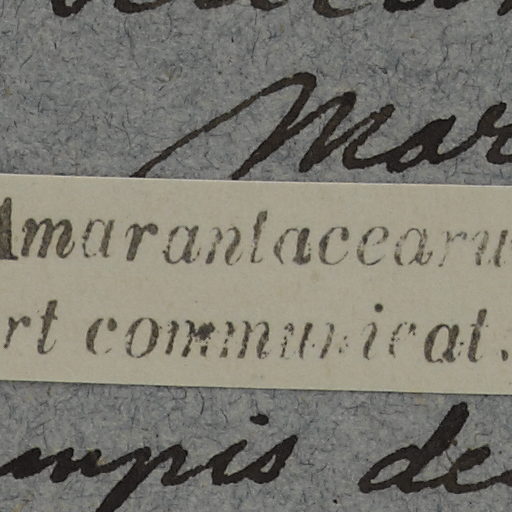 Mar
Amarantacearu
rt communicat.
mpis de